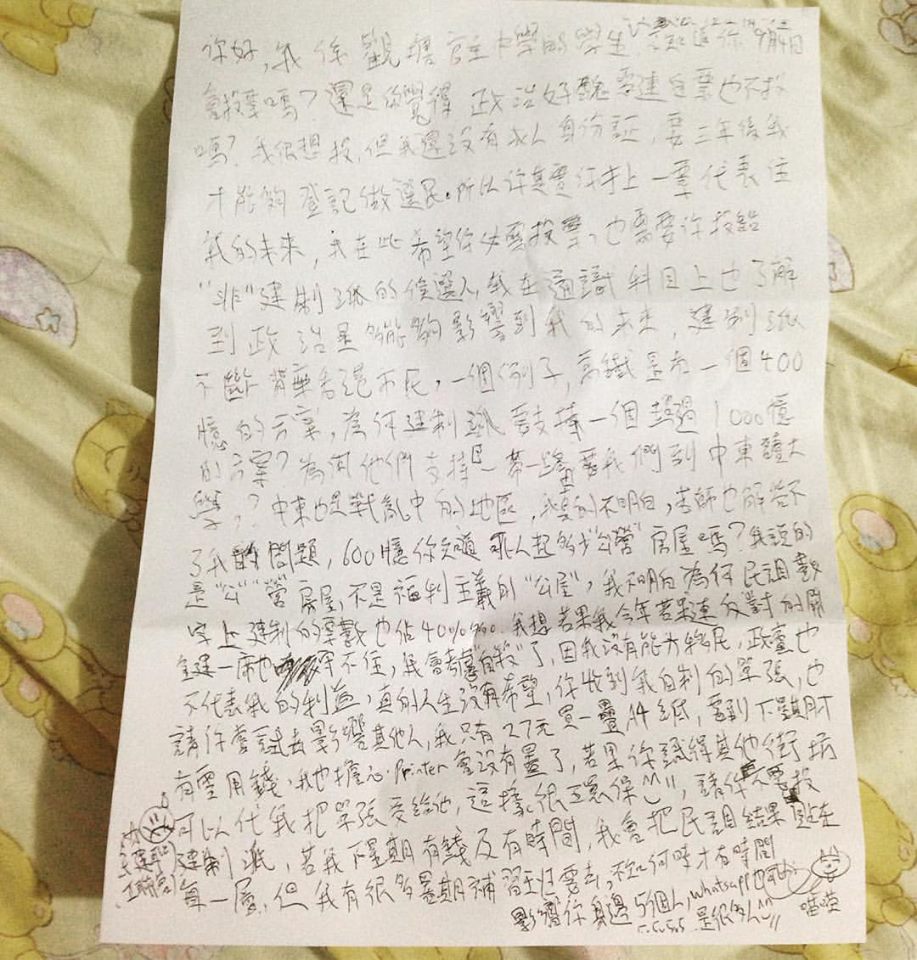 你好,我係觀塘官立中學的學生 知道你9月4日
會投票嗎?還是你覺得 政治好醜 連白票也不投
嗎?我很想投,但我還沒有成人身份証,要三年後我
才能夠登記做選民.所以你其實手上一票代表住
我的未來,我在此希望你必要投票,也需要你投給
"非"建制派的侯選人,我在通識科目上也了解
到政治是多能夠影響到我的未來,建制派
不斷背棄香港市民,一個例子,高鐵是有一個400
億的方案,為何建制派支持一個超過1000億
的方案?為何他們支持 帶一路要我們到中東讀大
學,?中東也是戰亂中的地區,我真的不明白,老師也解答不
了我的問題,600億你知道可以起多少"公營"房屋嗎?我說的
是"公""營"房屋,不是福利主義的"公屋",我不明白為何民調數
字上建制的票數也佔40%.我想若果我今年若果連反對的關
鍵一席也 守不住,我會考慮"自殺"了,因我沒有能力移民,政黨也
不代表我的利益,真的人生沒有希望,你收到我自制的單張,也
請你嘗試去影響其他人,我只有27元買一疊A4紙,要到下星期才
有零用錢,我也擔心Printer會沒有墨了,若果你識得其他街坊
可以代我把單張交給他,這樣很環保^^",請你不要投
建制派,若我下星期有錢及有時間,我會把民調結果貼在
每一層,但我有很多暑期補習班要去,不知何時才有時間
影響你身邊5個人,whatsapp也可以
是很多人^^"
喵喵